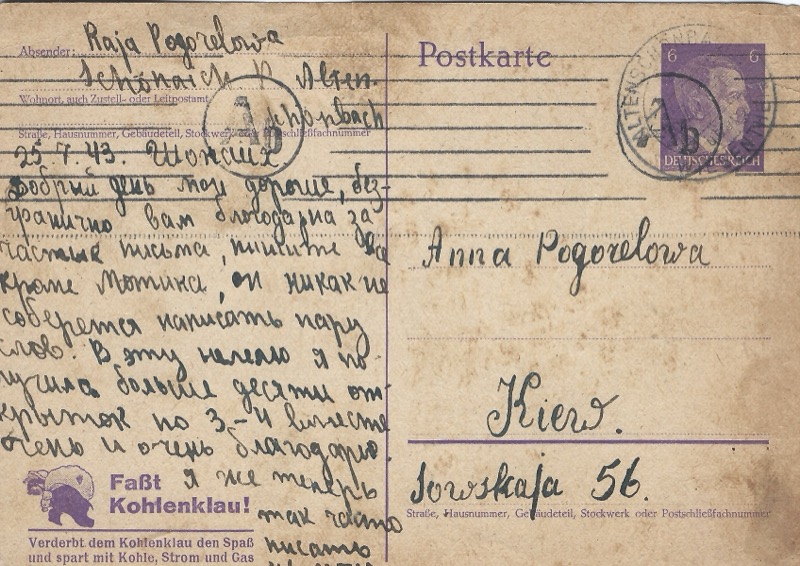 Absender: Raja Pogorelowa
Schönaich P. Alten
Wohnort, auch Zustell- oder Leitpostamt
schönbach
Straße, Hausnummer, Gebäudeteil, Stockwerk oder Postschließfachnummer
Ab
25.7.43. Шонаих
Добрый день мои дорогие, без-
гранично вам благодарна за
частые письма, пишите все
кроме Мотика, он никак не
соберется написать пару
слов. В эту неделю я по-
лучила больше десяти от
крыток по 3-4 вместе
очень и очень благодарю.
я же теперь
так часто
писать
Faßt
Kohlenklau!
Verderbt dem Kohlenklau den Spaß
und spart mit Kohle, Strom und Gas
Postkarte
6 6
DEUTSCHES REICH
ALTENSCHÖNBA
Ab
Anna Pogorelowa
Kiew.
Sowskaja 56.
Straße, Hausnummer, Gebäudeteil, Stockwerk oder Postschließfachnummer